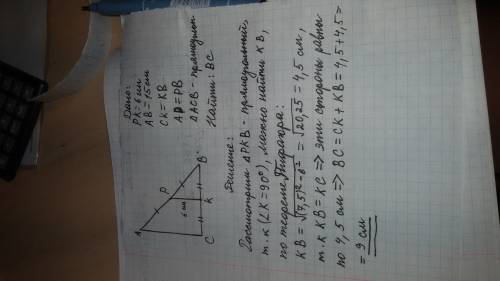 Дано:
PK = 6 см
AB = 15 см
CK = KB
AP = PB
ΔACB - прямоугольн
Найти: BC
A
P
B
6 см
K
C
Решение:
Рассмотрим ΔPKB - прямоугольный,
т.к (∠K = 90°), можно найти KB,
по теореме Пифагора:
KB = √(7,5)² - 6² = √20,25 = 4,5 см,
т.к KB = KC => эти стороны равны
по 4,5 см => BC = CK + KB = 4,5 + 4,5 =
= 9 см